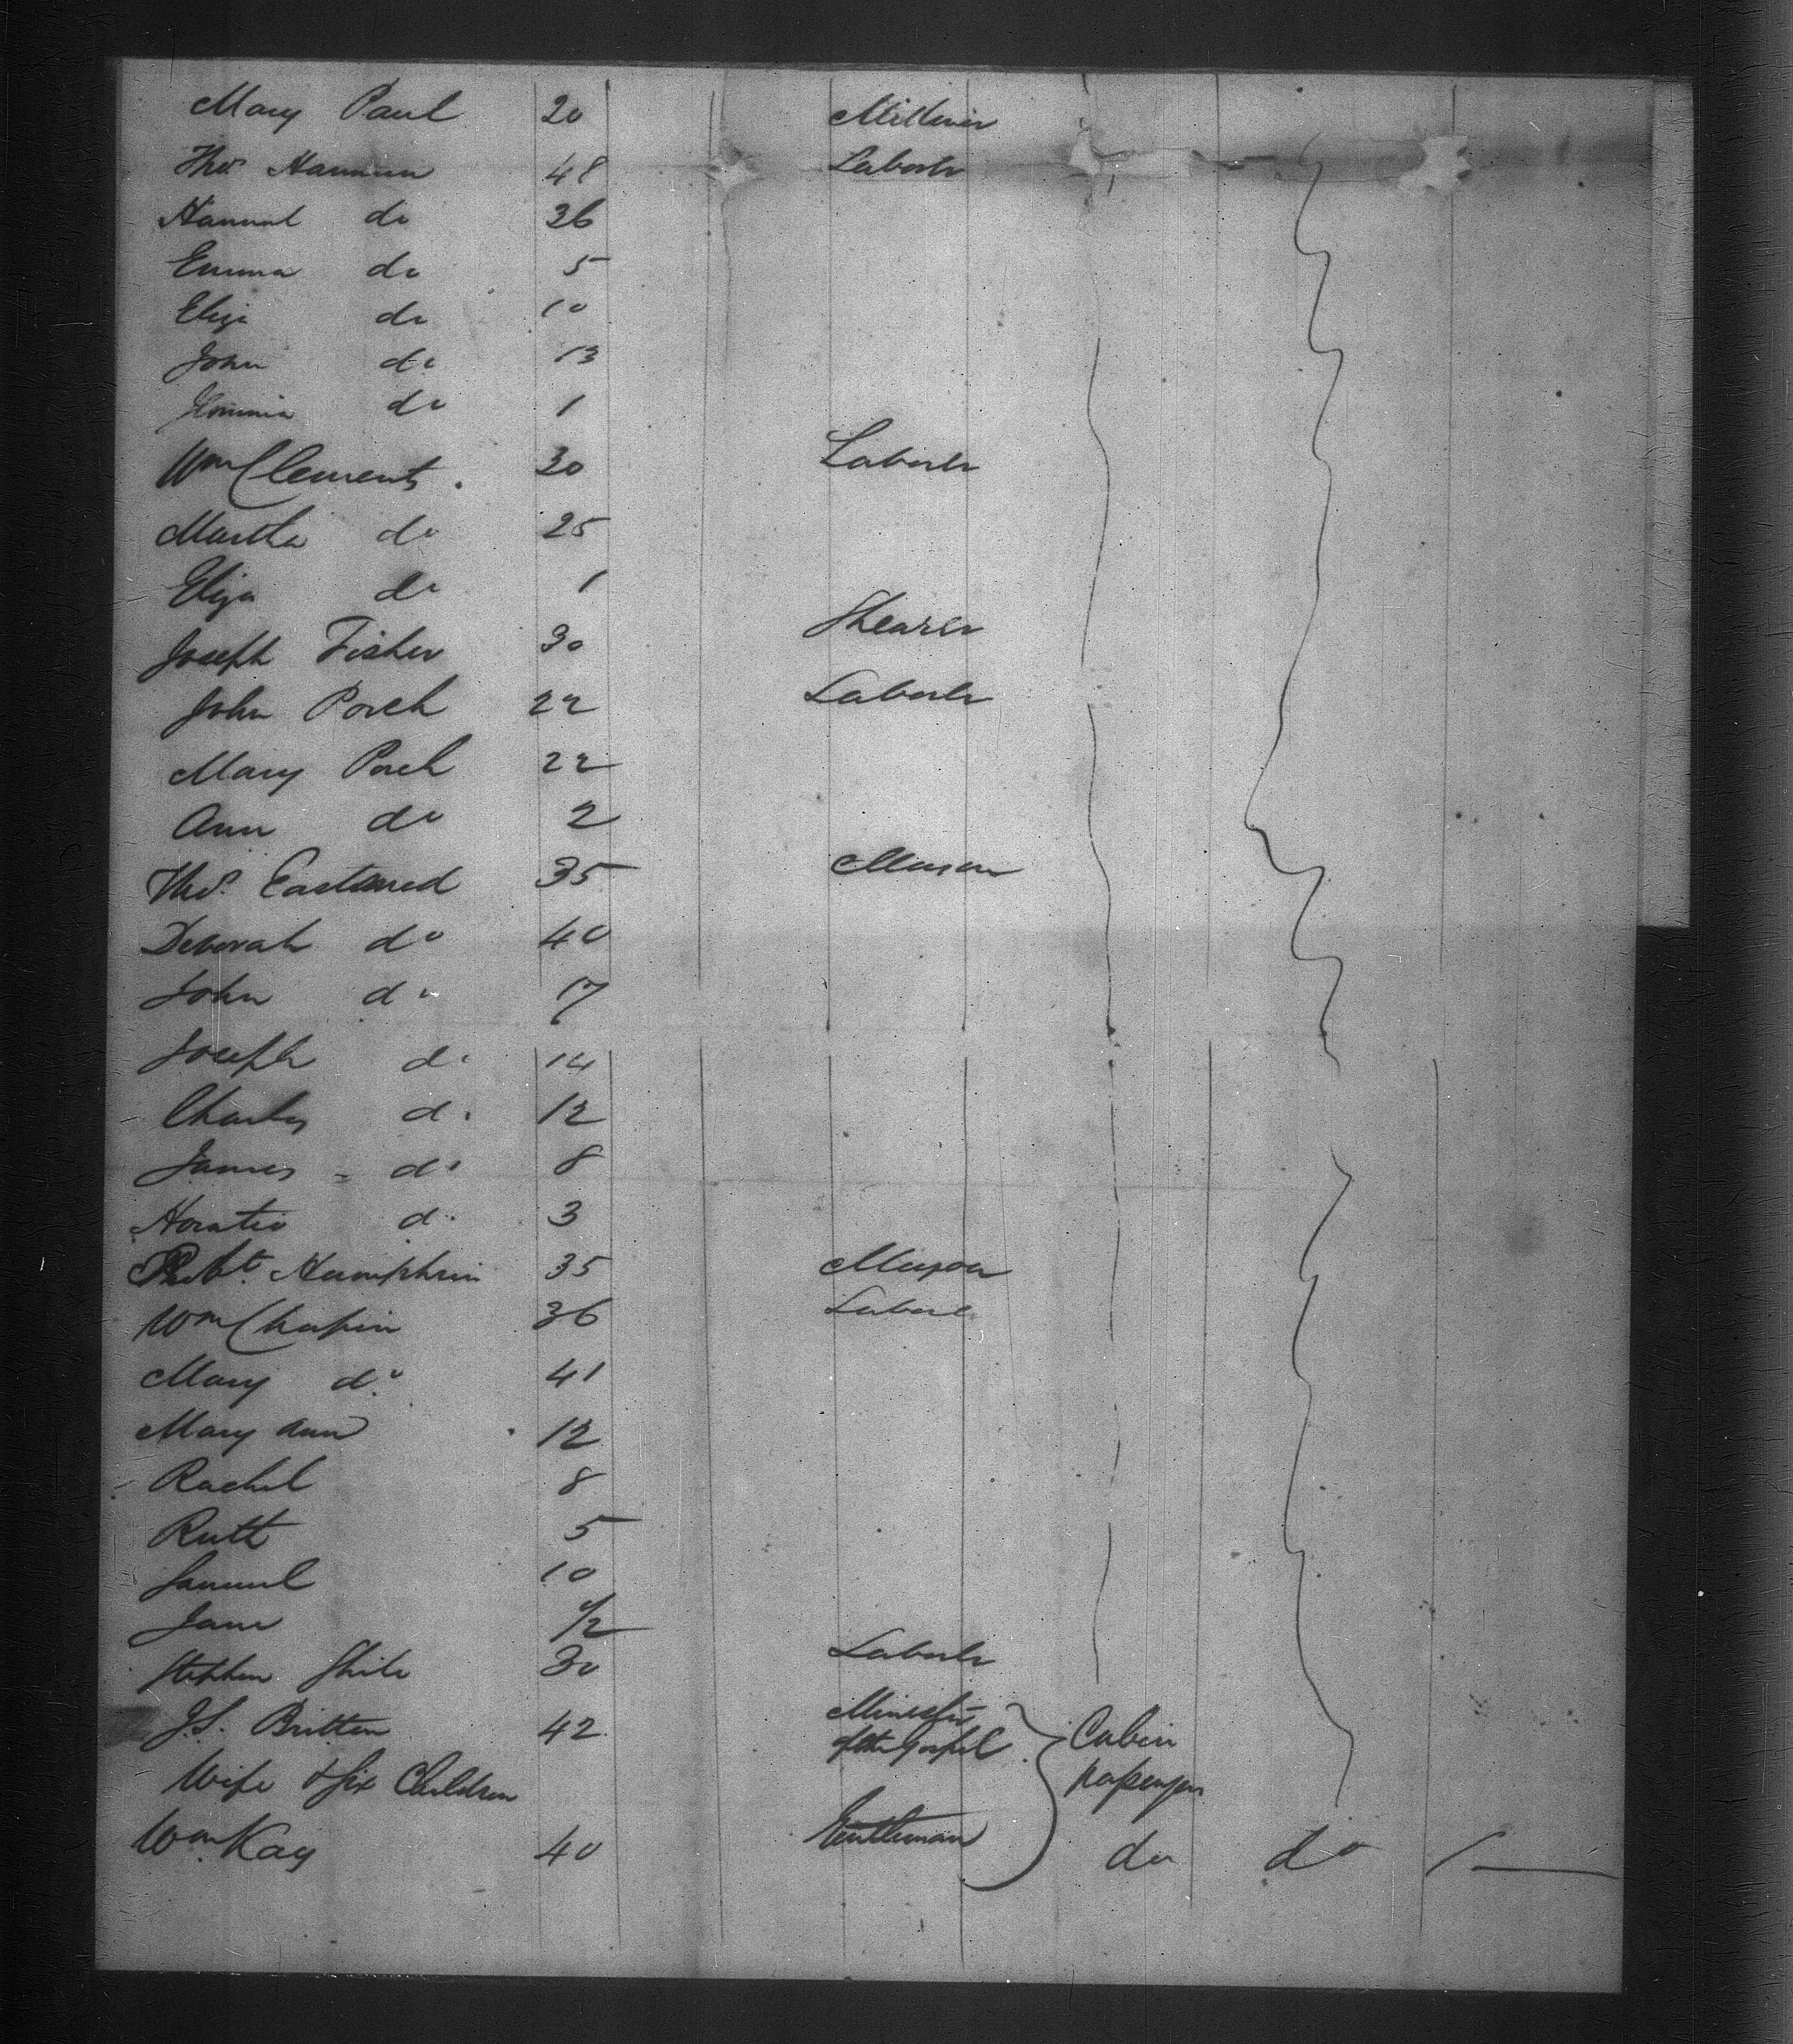 Mary Paul 20 Milliner
Thos. 48 Laborer
Hannah do 36
Emma do 5
Eliza do 10
John do 13
do 1
Wm Clements. 30 Laborer
Martha do 25
Eliza do 1
Joseph Fisher 30 Shearer
John Porch 22 Laborer
Mary Porch 22
Ann do 2
Thos. 35 Mason
Deborah do 40
John do 17
Joseph do 14
Charles do 12
James - do 8
Horatio do 3
Robt. Humphries 35 Mason
Wm Chapin 36 Laborer
Mary do 41
Mary Ann 12
Rachel 8
Ruth 5
Samuel 10
Jane 1/2
Stephen 30 Laborer
J.S. Britten 42 Minister
of the Gospel Cabin
Wife & Six Children passengers
Wm. Kay 40 Gentleman do do